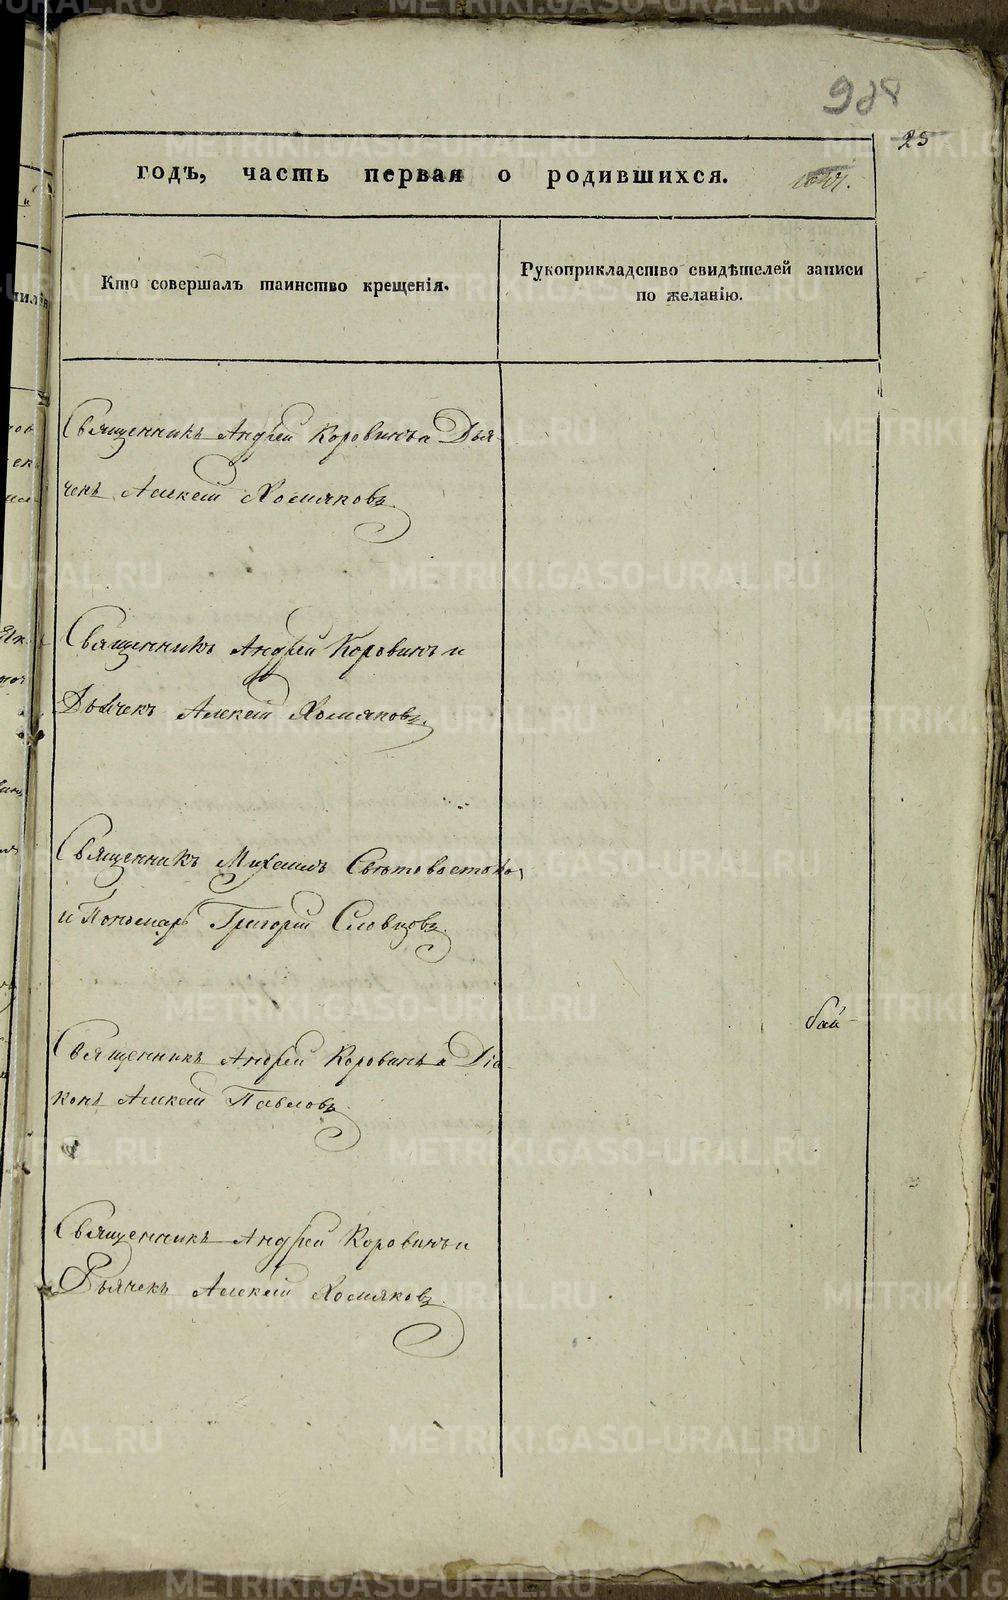 928
25
годъ, часть первая о родившихся.
Кто совершалъ таинство крещенія.
Рукоприкладство свидѣтелей записи
по желанію.
Священникъ Андрей Коровинъ и Дья-
чекъ Алексій Хомяковъ.
Священникъ Андрей Коровинъ и
Дьячекъ Алексій Хомяковъ.
Священникъ Михаилъ
и Пономарь Григорій Словцовъ.
Священникъ Андрей Коровинъ и Діа-
конъ Алексій Павловъ
Священникъ Андрей Коровинъ и
Дьячекъ Алексій Хомяковъ.
бай-
METRIKI.GASO-URAL.RU